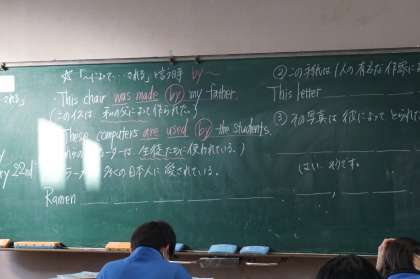 ☆「～によって…される」と言う時 by～
される」
・This chair was made (by) my father.
(このイスは、私の父によって作られた。)
・These computers are used (by) the students.
コンピーターは、生徒たちに使われている。)
22nd
ラーメンは 多くの日本人に愛されている。
Ramen
② この手紙は1人の有名な作家に
This letter
③ 私の写真は彼によって
はい、そうです。